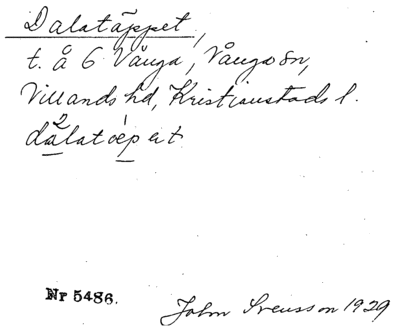 Dalatäppet,
t. å 6 Vånga, Vånga sn,
Villands hd, Kristianstads l.
dàlatæ̀pət
Nr 5486.
John Svensson 1929